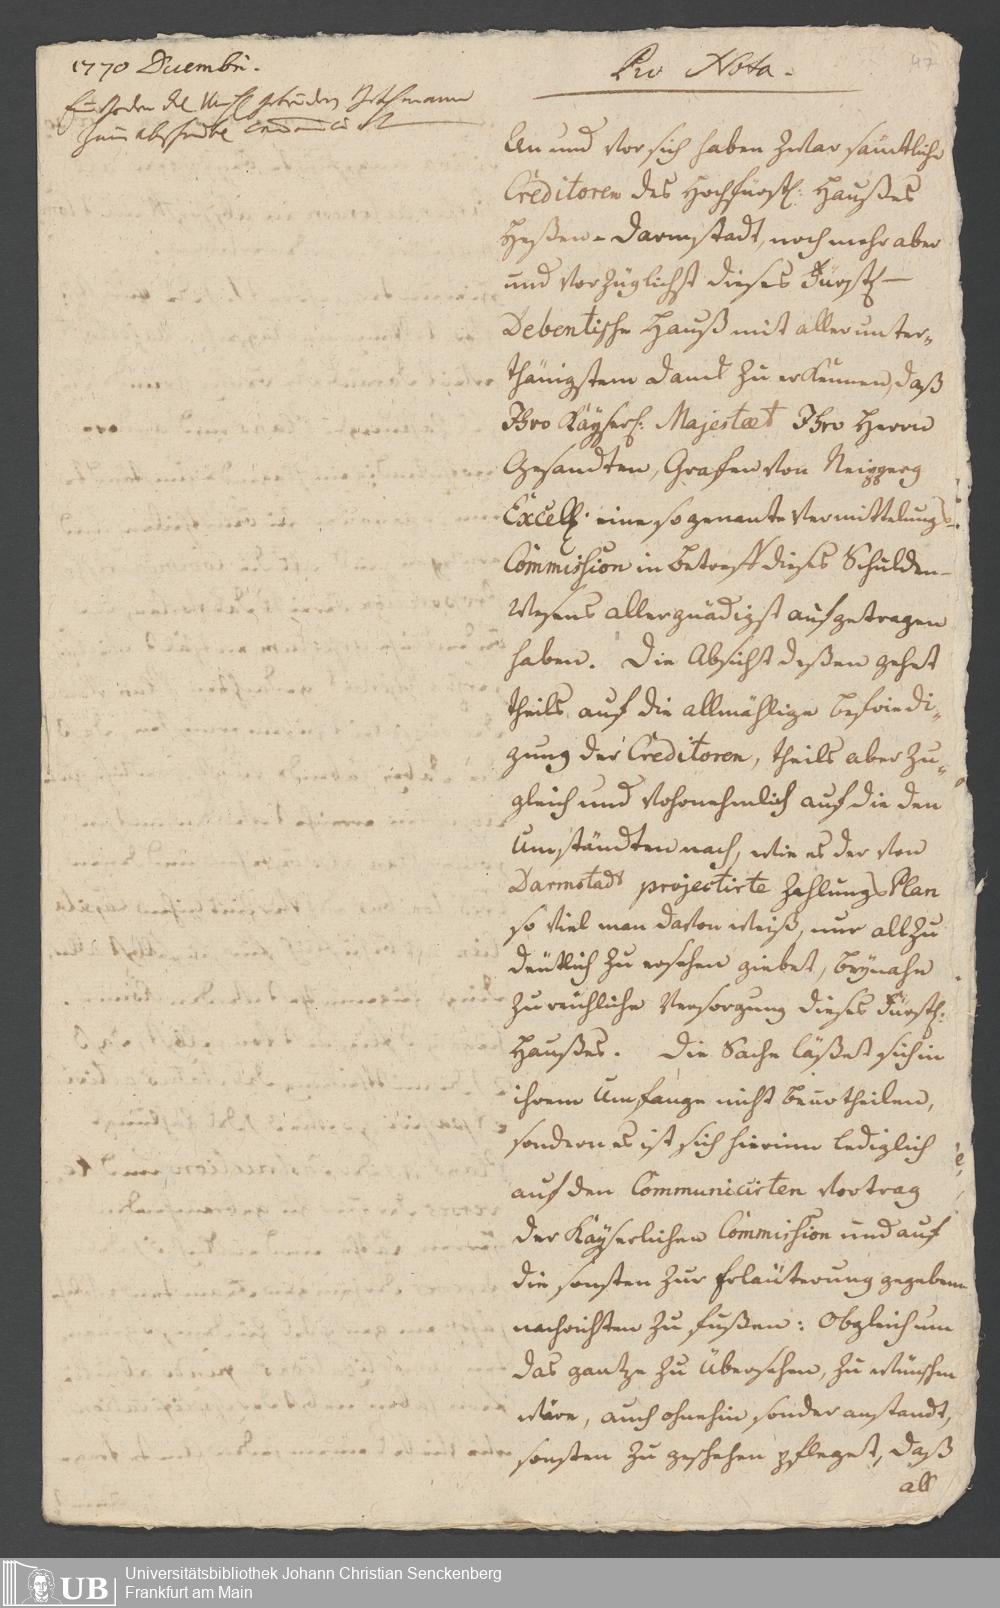 1770 Decembr.
Gebrüder Bethmann
Pro Nota.
47
An und vor sich haben zwar sämtliche
Creditoren des Hochfürstl: Haußes
Heßen-Darmstadt, noch mehr aber
und vorzüglichst dieses Fürstl-
Debentische Hauß mit allerunter-
thänigstem Danck zu erkennen, daß
Ihro Kayserl: Majestaet Ihro Herrn
Gesandten, Grafen von Neipperg
Excell. eine so genante Vermittelungs-
Commission in betreff dieses Schulden-
Wesens allergnädigst aufgetragen
haben. Die Absicht deßen gehet
theils auf die allmählige befriedi-
gung der Creditoren, theils aber zu-
gleich und vohrnehmlich auf die den
Umständten nach, wie es der von
Darmstadt projectirte Zahlungs Plan
so viel man davon weiß, nur allzu
deutlich zu ersehen giebet, beynahe
zureichliche Versorgung dieses Fürstl:
Haußes. Die Sache läßet sich in
ihrem Umfange nicht beurtheilen,
sondern es ist sich hierinn lediglich
auf den Communicirten Vortrag
der Kayserlichen Commission und auf
die sonsten zur Erläuterung gegebene
nachrichten zu fußen: Obgleich um
das gantze zu übersehen, zu wünschen
wäre, auch ohnehin sonder anstandt,
sonsten zu geschehen pfleget, daß
all
UB
Universitätsbibliothek Johann Christian Senckenberg
Frankfurt am Main